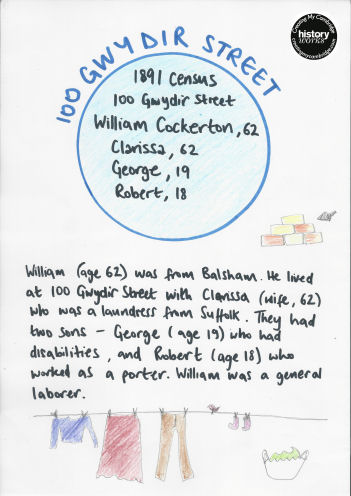 Creating My Cambridge
history
WORKS
creatingmycambridge.com
100 GWYDIR STREET
1891 Census
100 Gwydir Street
William Cockerton, 62
Clarissa, 62
George, 19
Robert, 18
William (age 62) was from Balsham. He lived
at 100 Gwydir Street with Clarissa (wife, 62)
who was a laundress from Suffolk. They had
two sons – George (age 19) who had
disabilities, and Robert (age 18) who
worked as a porter. William was a general
laborer.